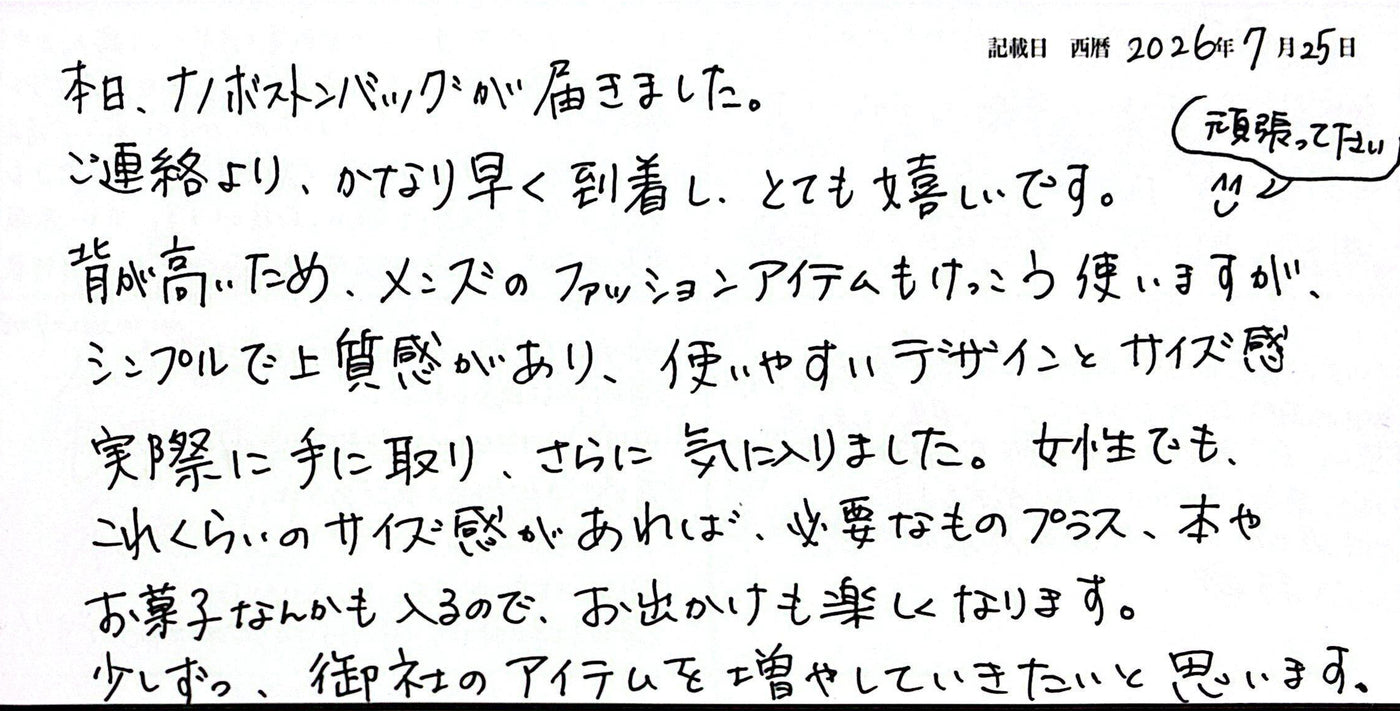 記載日 西暦 2026年7月25日
本日、ナノボストンバッグが届きました。
頑張って下さい
ご連絡より、かなり早く到着し、とても嬉しいです。
背が高いため、メンズのファッションアイテムもけっこう使いますが、
シンプルで上質感があり、使いやすいデザインとサイズ感
実際に手に取り、さらに気に入りました。女性でも、
これくらいのサイズ感があれば、必要なものプラス、本や
お菓子なんかも入るので、お出かけも楽しくなります。
少しずつ、御社のアイテムを増やしていきたいと思います。